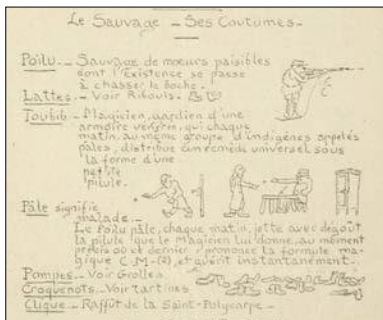 Le Sauvage - Ses Coutumes -
Poilu. - Sauvage de mœurs paisibles
dont l'existence se passe
à chasser le boche.
Lattes. - Voir Ribouis.
Toubib. - Magicien, gardien d'une
armoire vitrée, qui chaque
matin, au même groupe d'indigènes appelés
pâles, distribue un remède universel sous
la forme d'une
petite
pilule.
Pâle signifie
malade. -
Le Poilu pâle, chaque matin, jette avec dégoût
la pilule que le magicien lui donne, au moment
précis où ce dernier prononce la formule ma-
gique C.M-(2), et guérit instantanément.
Pompes - Voir Grolles
Croquenots. Voir tartines
Clique - Raffût de la Saint-Polycarpe -